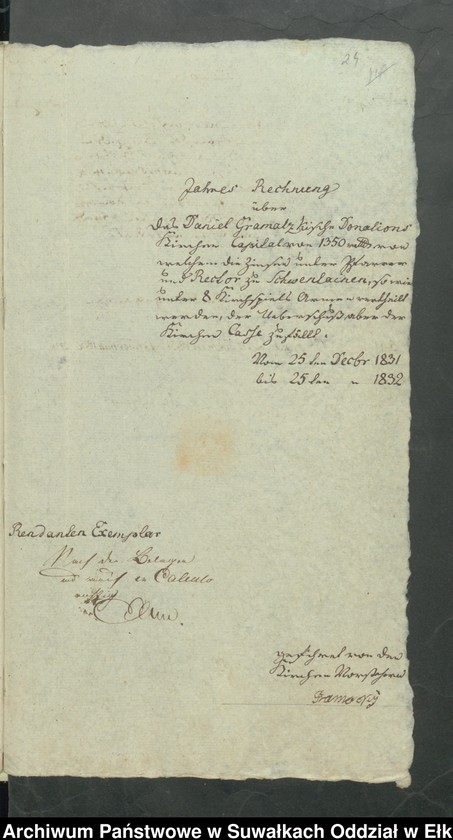 24
Jahres Rechnung
über
das Daniel Gramatzkische Donations
Kirchen Capital von 1350 von
welchem die Zinsen unter Pfarrer
und Rector zu Schwentainen, so wie
unter 8 Kirchspiels Armen vertheilt
werden, der Ueberschuß aber der
Kirchen Casse zufällt.
Vom 25 ten Decbr 1831
bis 25 ten " 1832
Rendanten Exemplar
Nach den Belegen
und auch in Calculo
richtig
geführt von dem
Kirchen Vorsteher
Archiwum Państwowe w Suwałkach Oddział w Ełk